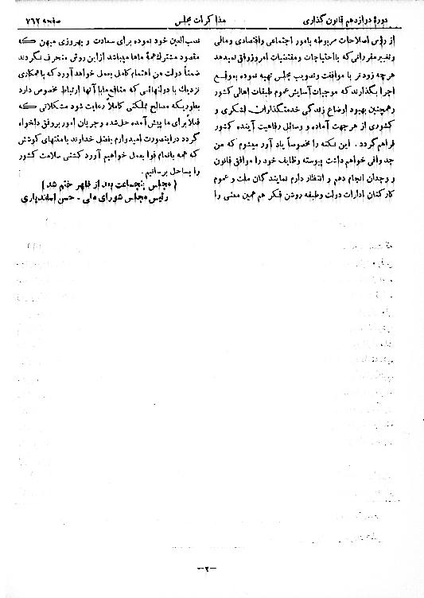 دورهٔ دوازدهم قانون گذاری
مذاکرات مجلس
صفحه ۷۶۲
از رؤس اصلاحات مربوطه بامور اجتماعی واقتصادی ومالی
وتغییر مقرراتی که بااحتیاجات ومقتضیات امروز وفق نمیدهد
هرچه زودتر با موافقت وتصویب مجلس تهیه نموده بموقع
اجرا بگذارند که موجبات آسایش عموم طبقات اهالی کشور
وهمچنین بهبود اوضاع زندگی خدمتگذاران لشکری و
کشوری از هر جهت آماده و وسائل رفاهیت آینده کشور
فراهم گردد . این نکته را مخصوصاً یاد آور میشوم که من
جد وافی خواهم داشت پیوسته وظایف خود را موافق قانون
و وجدان انجام دهم و انتظار دارم نمایندگان ملت و عموم
کارکنان ادارات دولت وطبقه روشن فکر هم همین معنی را
نصب‌العین خود نموده برای سعادت و بهروزی میهن که
مقصود مشترک همهٔ ماها میباشد از این روش منحرف نگردند
ضمناً دولت من اهتمام کامل بعمل خواهد آورد که باهمکاری
نزدیك با دولتهائی که منافع ما با آنها ارتباط مخصوص دارد
بطوریکه مصالح مملکتی کاملاً رعایت شود مشکلاتی که
فعلاً برای ما پیش آمده حل شده و جریان امور بر وفق دلخواه
گردد در اینصورت امیدوارم بفضل خداوند بامنتهای کوشش
که همه باتمام قوا بعمل خواهیم آورد کشتی سلامت کشور
را بساحل برسانیم .
( مجلس پنجساعت بعد از ظهر ختم شد )
رئیس مجلس شورای ملی - حسن اسفندیاری
-۲-